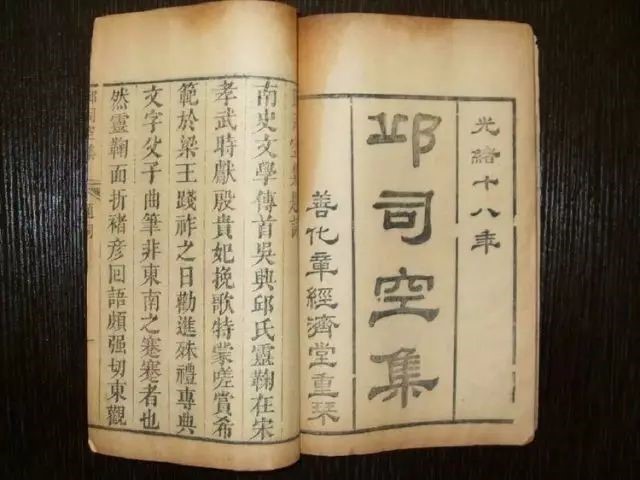 光緒十八年
邱司空集
善化章經濟堂重琹
南史文學傳首吳興邱氏靈鞠在宋
孝武時獻殷貴妃挽歌特蒙嗟賞希
範於梁王踐祚之日勸進殊禮專典
文字父子曲筆非東南之蹇蹇者也
然靈鞠面折褚彦回語頗强切東觀